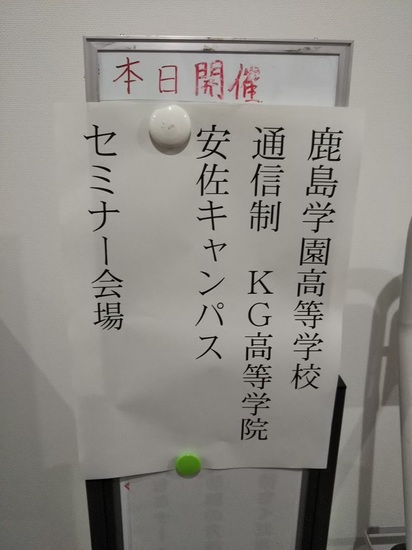 本日開催
鹿島学園高等学校
通信制 KG高等学院
安佐キャンパス
セミナー会場